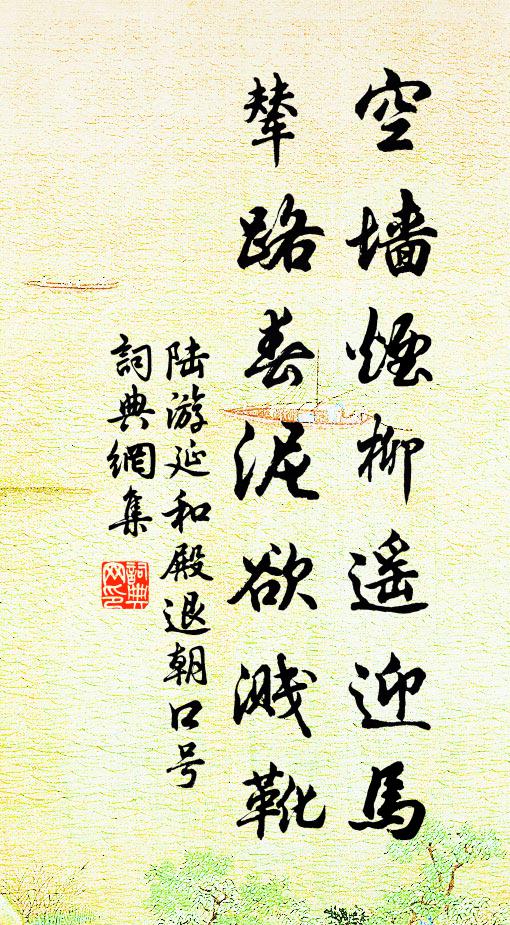 空墙烟柳遥迎馬
辇路春泥欲溅靴
陆游延和殿退朝口号
詞典網集
詞典网印